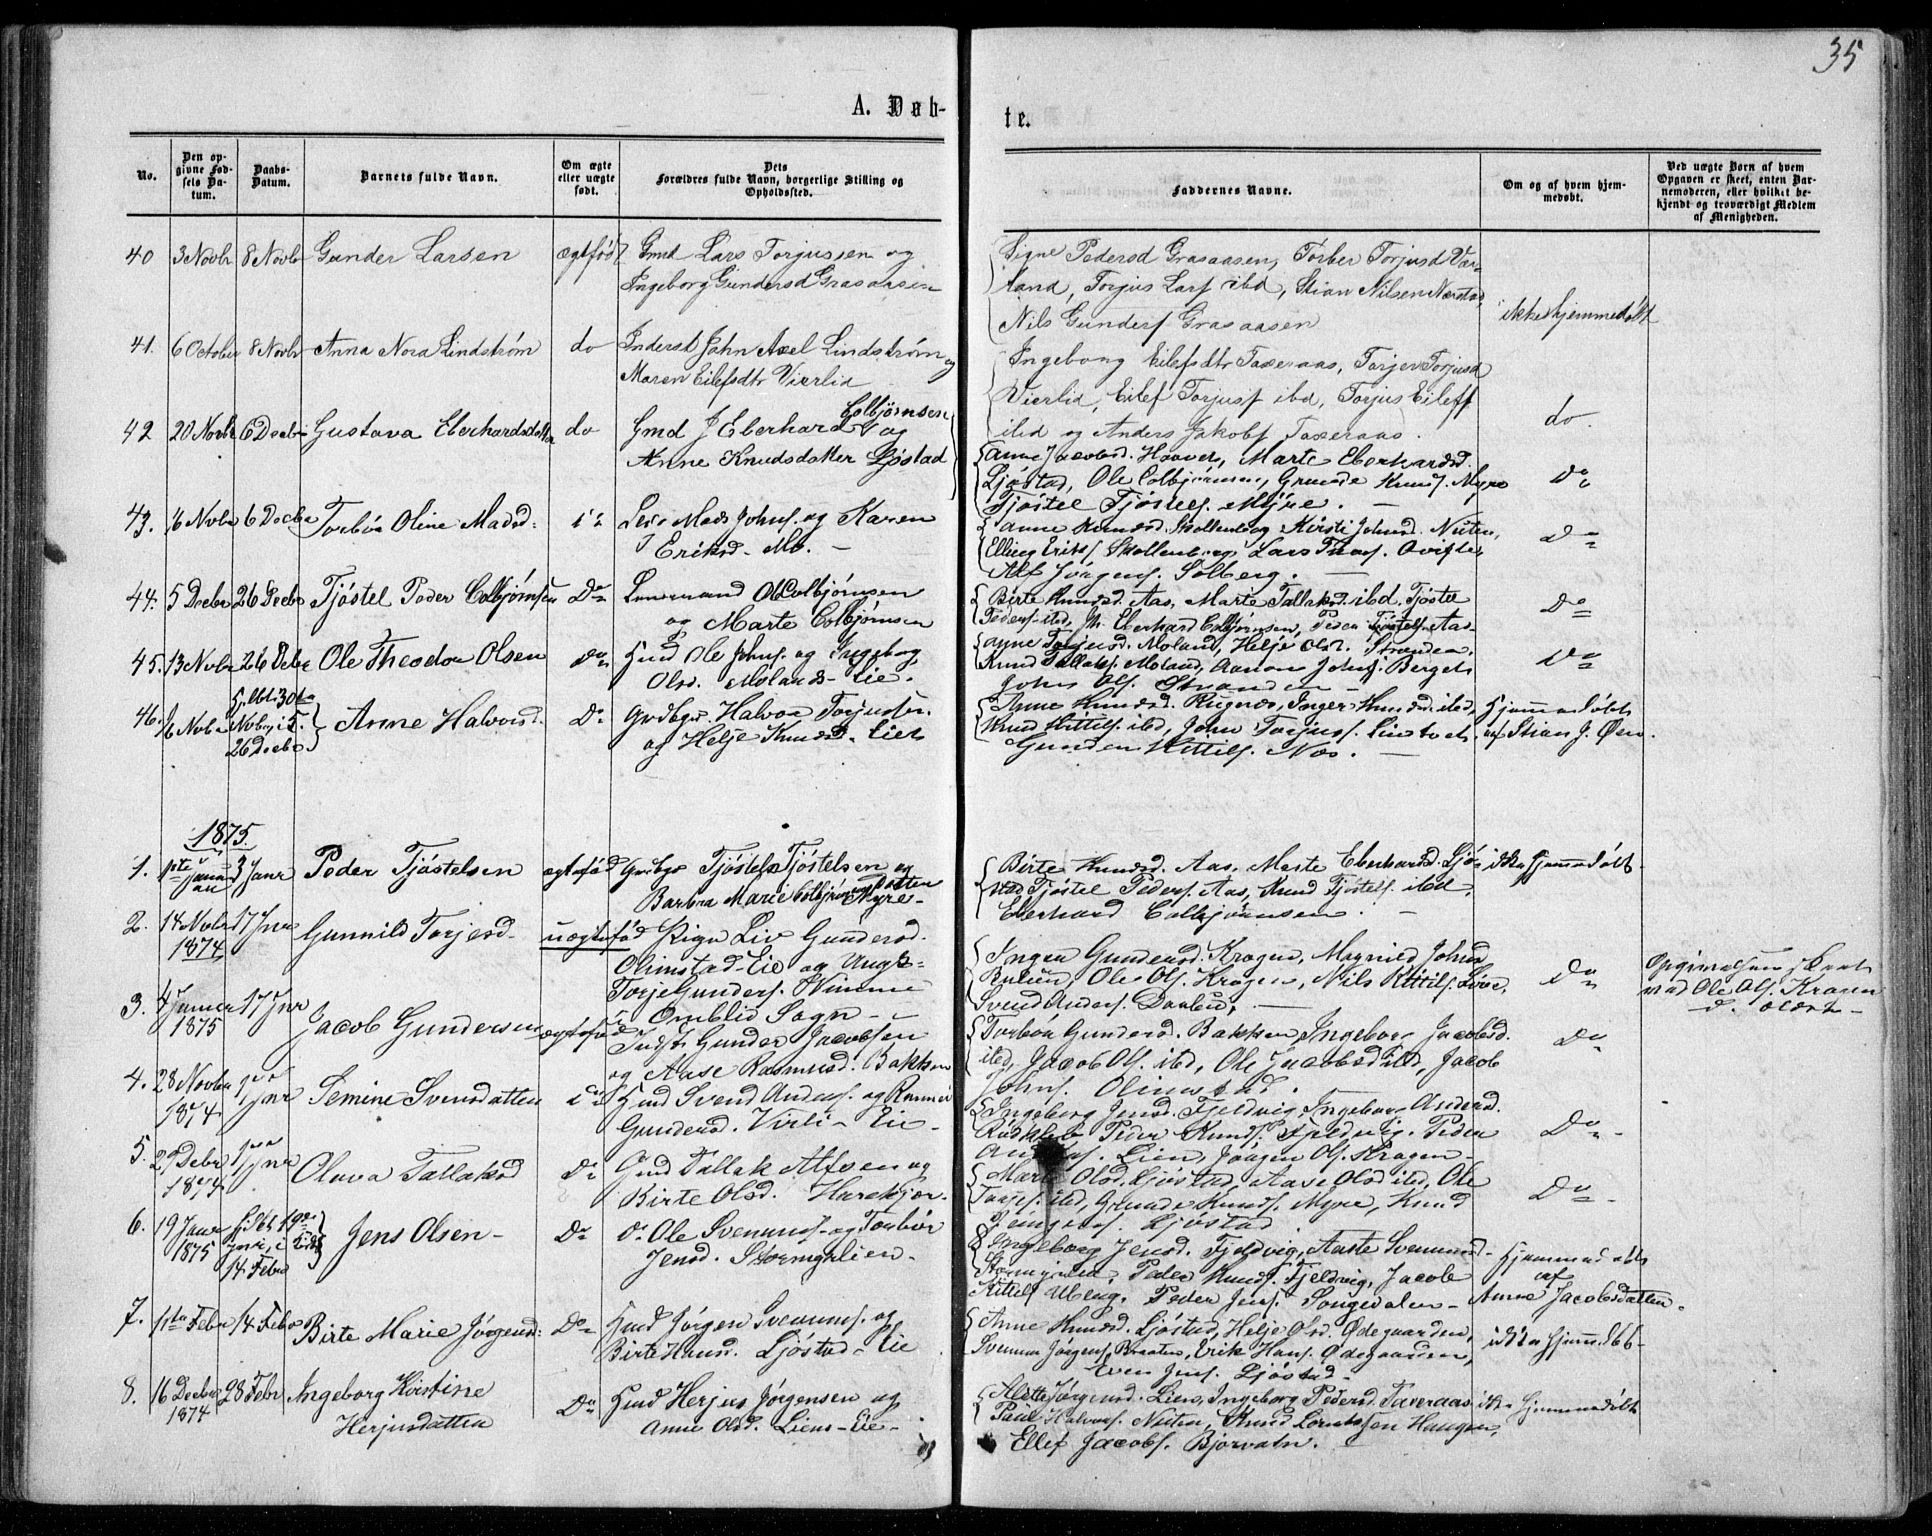 35
A. Døb-
te.
No.
Den opgivne Fødsels Datum.
Daabs-Datum.
Barnets fulde Navn.
Om ægte eller uægte født.
Dets Forældres fulde Navn, borgerlige Stilling og Opholdssted.
Faddernes Navne.
Om og af hvem hjemmedøbt.
Ved uægte Børn af hvem Opgaven er skeet, enten Barnemoderen, eller hvilket bekjendt og troværdigt Medlem af Menigheden.
40 3 Novbr 8 Novbr Gunder Larsen ægtefød Gmd Lars Torjussen og
Ingeborg Gundersd Grasaasen
Signe Pedersd Grasaasen, Torber Torjusd Vær-
land, Torjus Larss ibd, Stian Nilsen Nærstad,
Nils Gunderss Grasaasen
ikke hjemmedøbt
41. 6 October 8 Novbr Anna Nora Lindstrøm do Inderst John Axel Lindstrøm og
Maren Eilefsdtr Vierlid
Ingeborg Eilefsdtr Taxeraas, Torjer Torjusd
Vierlid, Eilef Torjuss ibd, Torjus Eilefs
ibd og Anders Jakobs Taxeraas.
do.
42 20 Novbr 6 Decbr Gustava Eberhardsdatter do Gmd J Eberhard Colbjørnsen og
Anne Knudsdatter Ljøstad
Anne Jacobsd. Hoaver, Marte Eberhardsd.
Ljøstad, Ole Colbjørnsen, Grunde Knuds. Myre
Tjøstel Tjøstels. Myre. -
Do
43. 16 Novbr 6 Decbr Torbør Oline Madsd. Mads Johns. og Karen
Eriksd. Mo. -
Anne Knudsd. Skollenborg Kirsti Johnsd. Nuten,
Elling Eriks Skollenborg, Lars
Alf Jørgens. Solberg. -
Do
44. 5 Decbr 26 Decbr Tjøstel Peder Colbjørnsen Do Ole Colbjørnsen
og Marte Colbjørnsen
Birte Knudsd. Aas, Marte Tallaksd. ibd. Tjøste
Peders. ibd, Jh. Eberhard Colbjørnsen, Peder Tjøstels. Aas.
Do
45. 13 Novbr 26 Decbr Ole Theodor Olsen Do Hmd Ole Johns. og Ingeborg
Olsd. Molands-Eie.
Anne Torjusd. Moland, Helje Olsd. Stranden
Knud Tallaks. Moland, Aanon Johns. Berget
John Ols. Stranden -
Do
46. 16 Novbr 30te
Novbr, i
26 Decbr
Anne Halvorsd. Do Grdbgr. Halvor Torjusse.
og Helje Knudsd. Lien
Anne Knudsd. Rugenes, Inger Knudsd. ibd,
Knud Kittels. ibd, John Torjuss. Lindtveit,
Gunder Kittils. Næs. -
Hjemmedøbt
af Stian J. Øen.
1875.
1. 1ste Januar 3 Janr Peder Tjøstelsen ægtefød Grbgr Tjøstel Tjøstelsen og
Barbra Marie Colbjørnsdatter Myre -
Birte Knudsd. Aas, Marte Eberhardsd. Ljø-
stad Tjøstel Peders. Aas, Knud Tjøstels. ibd.
Eberhard Colbjørnsen. -
ikke hjemmedøbt.
2. 14 Novbr 1874 17 Jnr Gunnild Torjesd. uægtefød Pige Liv Gundersd.
Olimstad-Eie og Ungk.
Torje Gunders. Wimme
Omblid Sogn -
Inger Gundersd. Kragen, Magnild Johnsd
Ole Ols. Kragen, Nils Kittils.
Svend Anders. Daalen. -
Do
Opgivelsen skeet
ved Ole Ols. Kragen
d. ældre -
3. 4 Januar 1875 17 Jnr Jacob Gundersen ægtefød Indst. Gunder Jacobsen
og Aase Rasmusd. Bakken
Torbør Gundersd. Bakken, Ingeborg Jacobsd.
ibd, Jacob Ols. ibd, Ole Jacobsd ibd, Jacob
Johns. Olimstad.
Do
4. 28 Novbr 1874 Jnr Semine Svensdatter Hmd Svend Anders. og
Gundersd. Virli - Eie -
Ingeborg Jensd. Fjeldvig, Ingeborg Andersd.
Rødkleb Peder Knuds. Fjeldvig. Peder
Anders. Lien, Jørgen Ols. Kragen -
Do
5. 29 Debr 1874 Jnr Olava Tallaksd Do Gmd Tallak Alfsen og
Birte Olsd. Harekjær.
Marte Olsd. Ljøstad, Aase Olsd ibd, Ole
Torjes. ibd, Grunde Knuds. Myre, Knud
Ljøstad
Do
6. 19 Janr 1875 19de
14 Febr Jens Olsen - Do do Ole Svenums. og Torbør
Jensd. Stormyrlien -
Ingeborg Jensd. Fjeldvig, Aaste Svenumsd.
Stormyrlien, Peder Knuds. Fjeldvig, Jacob
Kittels Uberg, Peder Jens. Songedalen -
Hjemmedøbt
af
Anne Jacobsdatter.
7. 1ste Febr 14 Febr Birte Marie Jørgensd: Do Hmd Jørgen Svenums. og
Birte Hansd. Ljøstad - Eie
Anne Knudsd. Ljøstad, Helje Olsd. Ødegaarden,
Svenum Jørgens. Braaten, Erik Hans. Ødegaarden,
Even Jens. Ljøstad -
ikke hjemmedøbt -
8. 16 Decbr 1874 28 Febr Ingeborg Kirstine
Herjusdatter
Do Hmd Herjus Jørgensen og
Anne Olsd. Liens - Eie -
Alette Jørgensd. Lien, Ingeborg Pedersd. Taxeraas
Paul Halvors. Nuten, Knud Haugen,
Ellef Jacobs. Bjorvatn. -
ikke hjemmedøbt